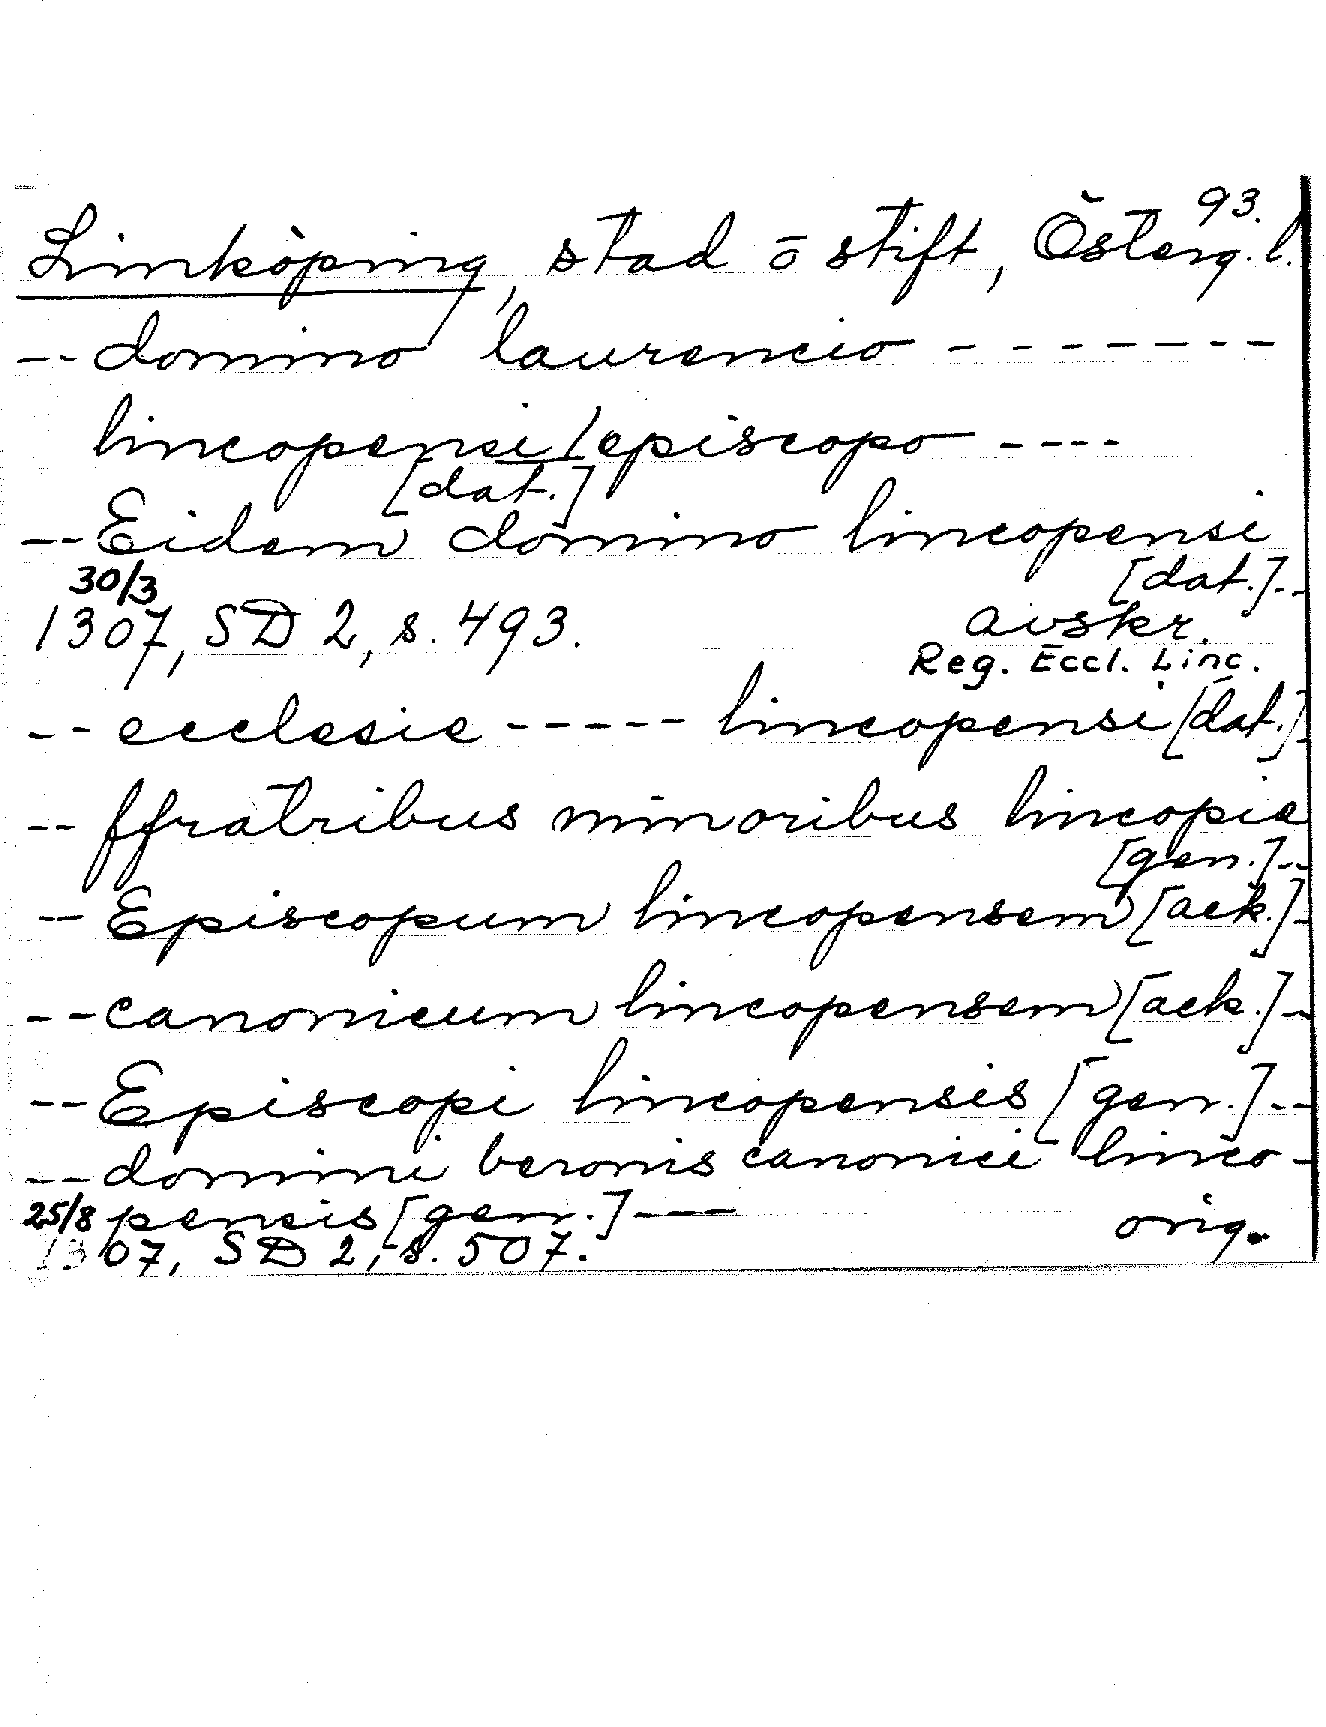 93.
Linköping, stad o stift, Österg. l.
-- domino laurencio -------
lincopensi / episcopo ----
[dat.]
-- Eidem domino lincopensi
[dat.]--
30/3
1307, SD 2, s. 493. avskr.
Reg. Eccl. Linc.
-- ecclesie ----- lincopensi [dat.]-
-- ffratribus minoribus lincopie
[gen.]--
-- Episcopum lincopensem [ack.]-
-- canonicum lincopensem [ack.]--
-- Episcopi lincopensis [gen.]--
-- domini beronis canonici linco-
pencis [gen.] --- orig.
25/8
1307, SD 2, s. 507.